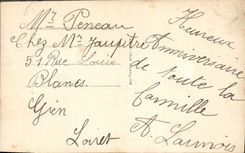 Mr Peneau
Chez Mr Jaupitre
51 Rue Louis
Blanc
Gien
Loiret
Heureux
Anniversaire
de toute la
famille
A. Launois